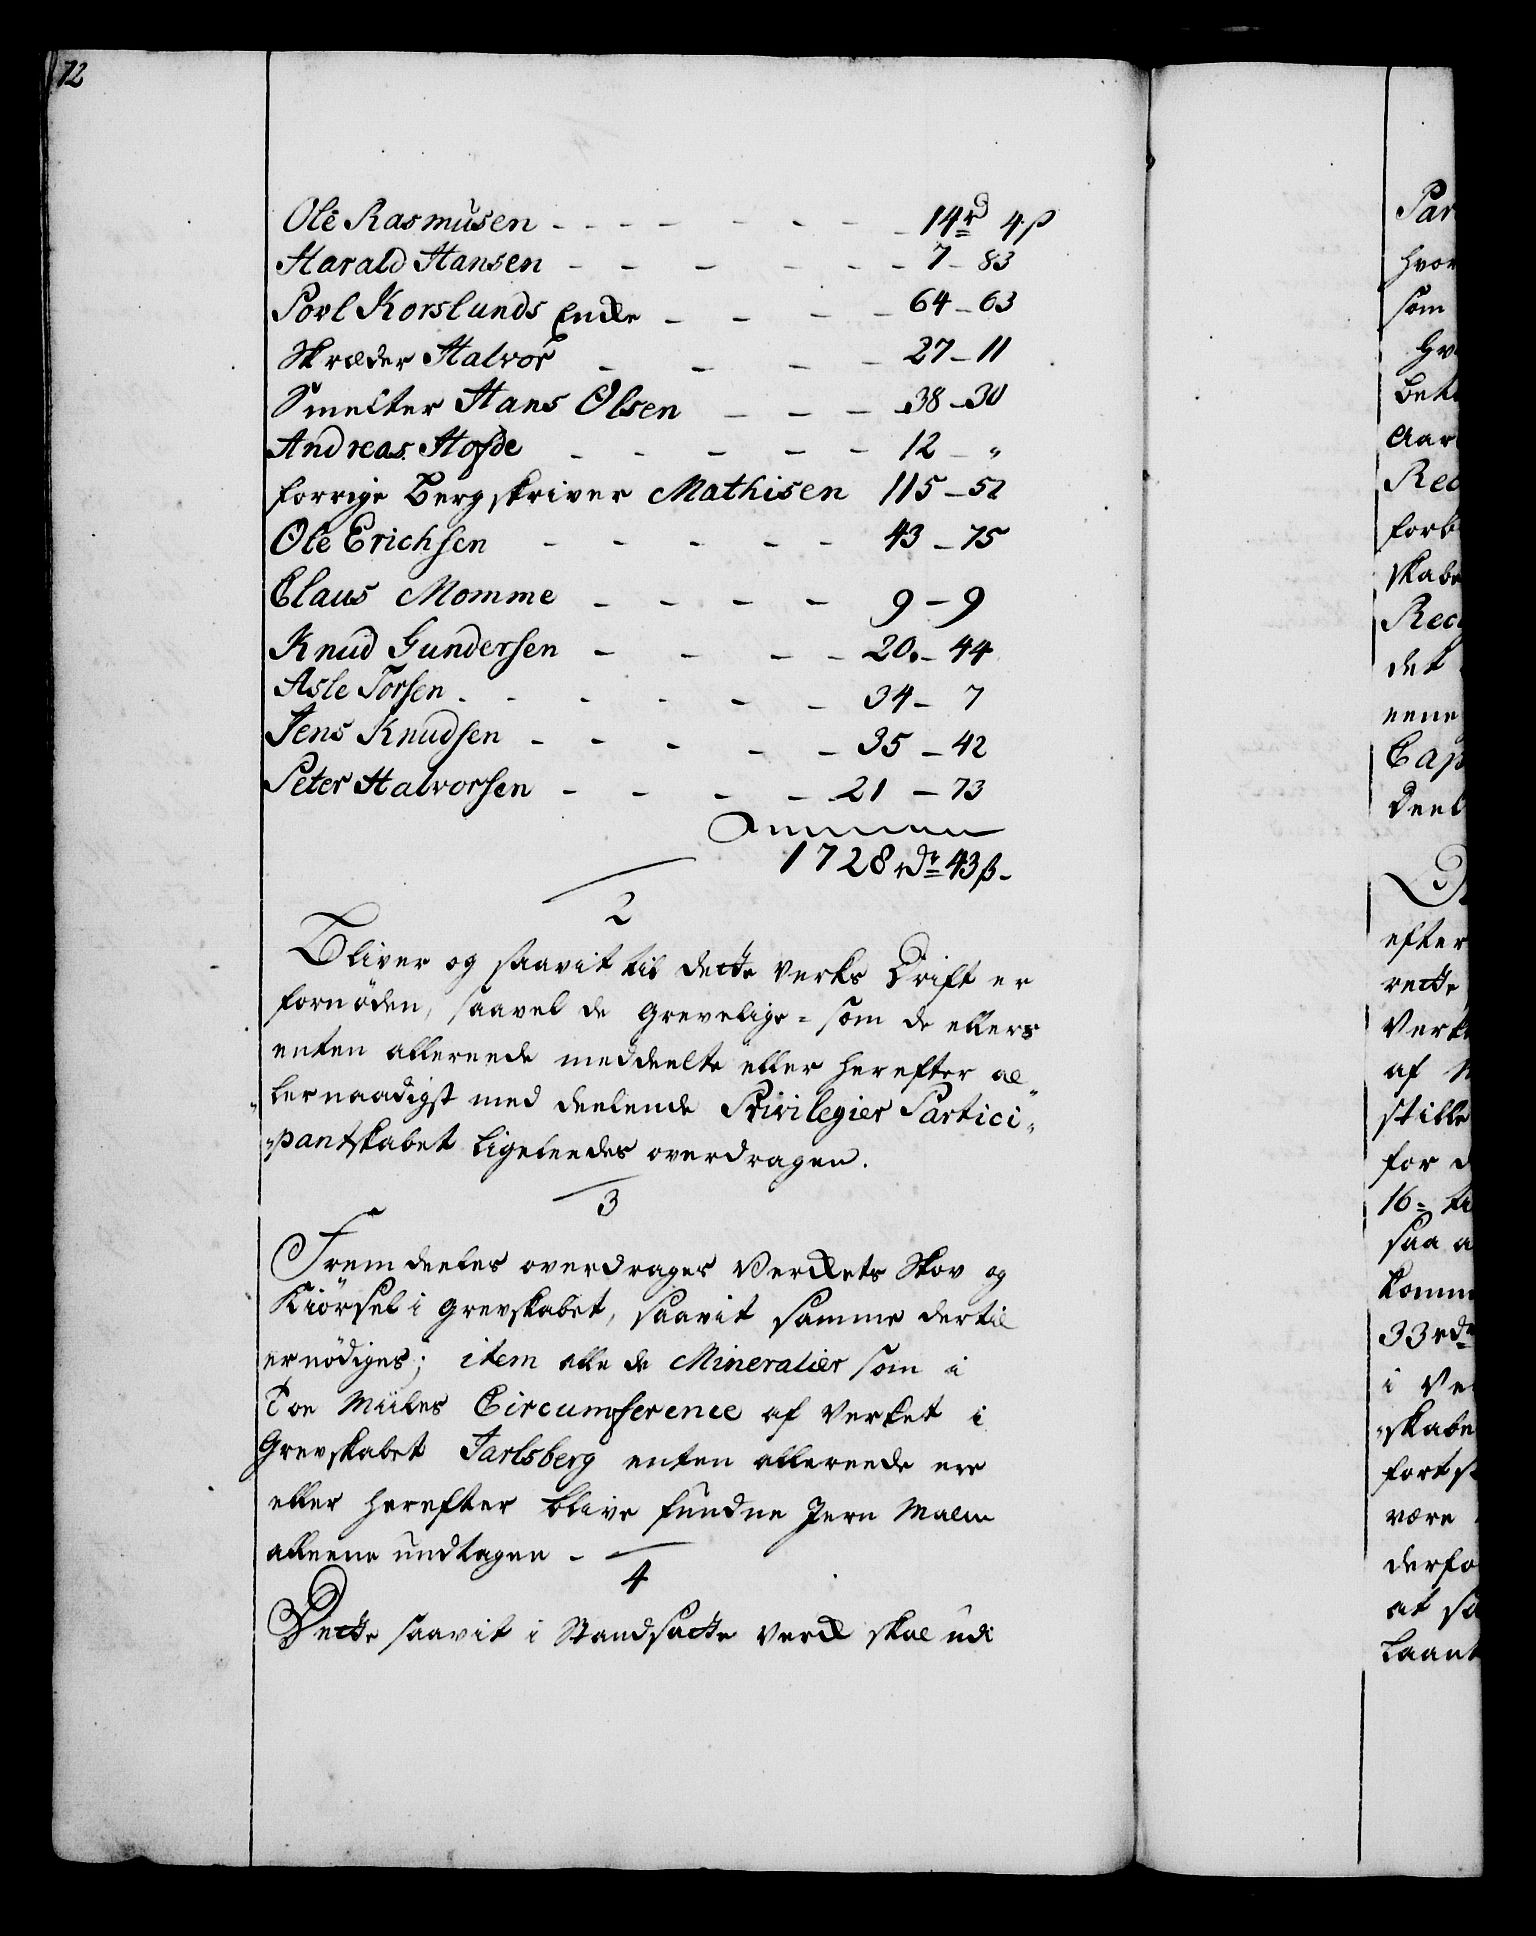 72
Ole Rasmusen - - - - - - - 14rd 4ß
Harald Hansen - - - - - - 7 - 83
Povl Korslunds Encke - - - - 64 - 63
Skræder Halvor - - - - 27 - 11
Smelter Hans Olsen - - - 38 - 30
Andreas Hofde - - - - - 12 - "
forrige Bergskriver Mathisen 115 - 52
Ole Erichsen - - - - - 43 - 75
Claus Momme - - - - 9 - 9
Knud Gundersen - - - - 20. - 44
Asle Torsen - - - - - - 34 - 7
Jens Knudsen - - - - - 35 - 42
Peter Halvorsen - - - - 21 - 73
Summa
1728 rdr 43 ß -
2
Bliver og saavit til dette Verks Drift er
fornøden, saavel de Grevelige = som de ellers
enten allereede meddeelte eller herefter al„
„lernaadigst meddeelende Privilegier Partici„
„pantskabet ligeleedes overdragen.
3
Fremdeeles overdrages Verckets Skov og
Kiørsel i Grevskabet, saavit samme dertil
ernødiges; item alle de Mineralier som i
Toe Miiles Circumference af Verket i
Grevskabet Jarlsberg enten allereede ere
eller herefter blive fundne Jern Malm
alleene undtagen -
4
Dette saavit i Standsatte Verck skal udi
Par
hvor
som
betal
Aar
Rec
forb
skabe
Rec
det
eene
Cap
Deel
efter
rette
Verk
af
stille
for d
16 =
saa a
komm
33 rdr
i Ve
„skabe
forts
være
derfo
at sa
laant